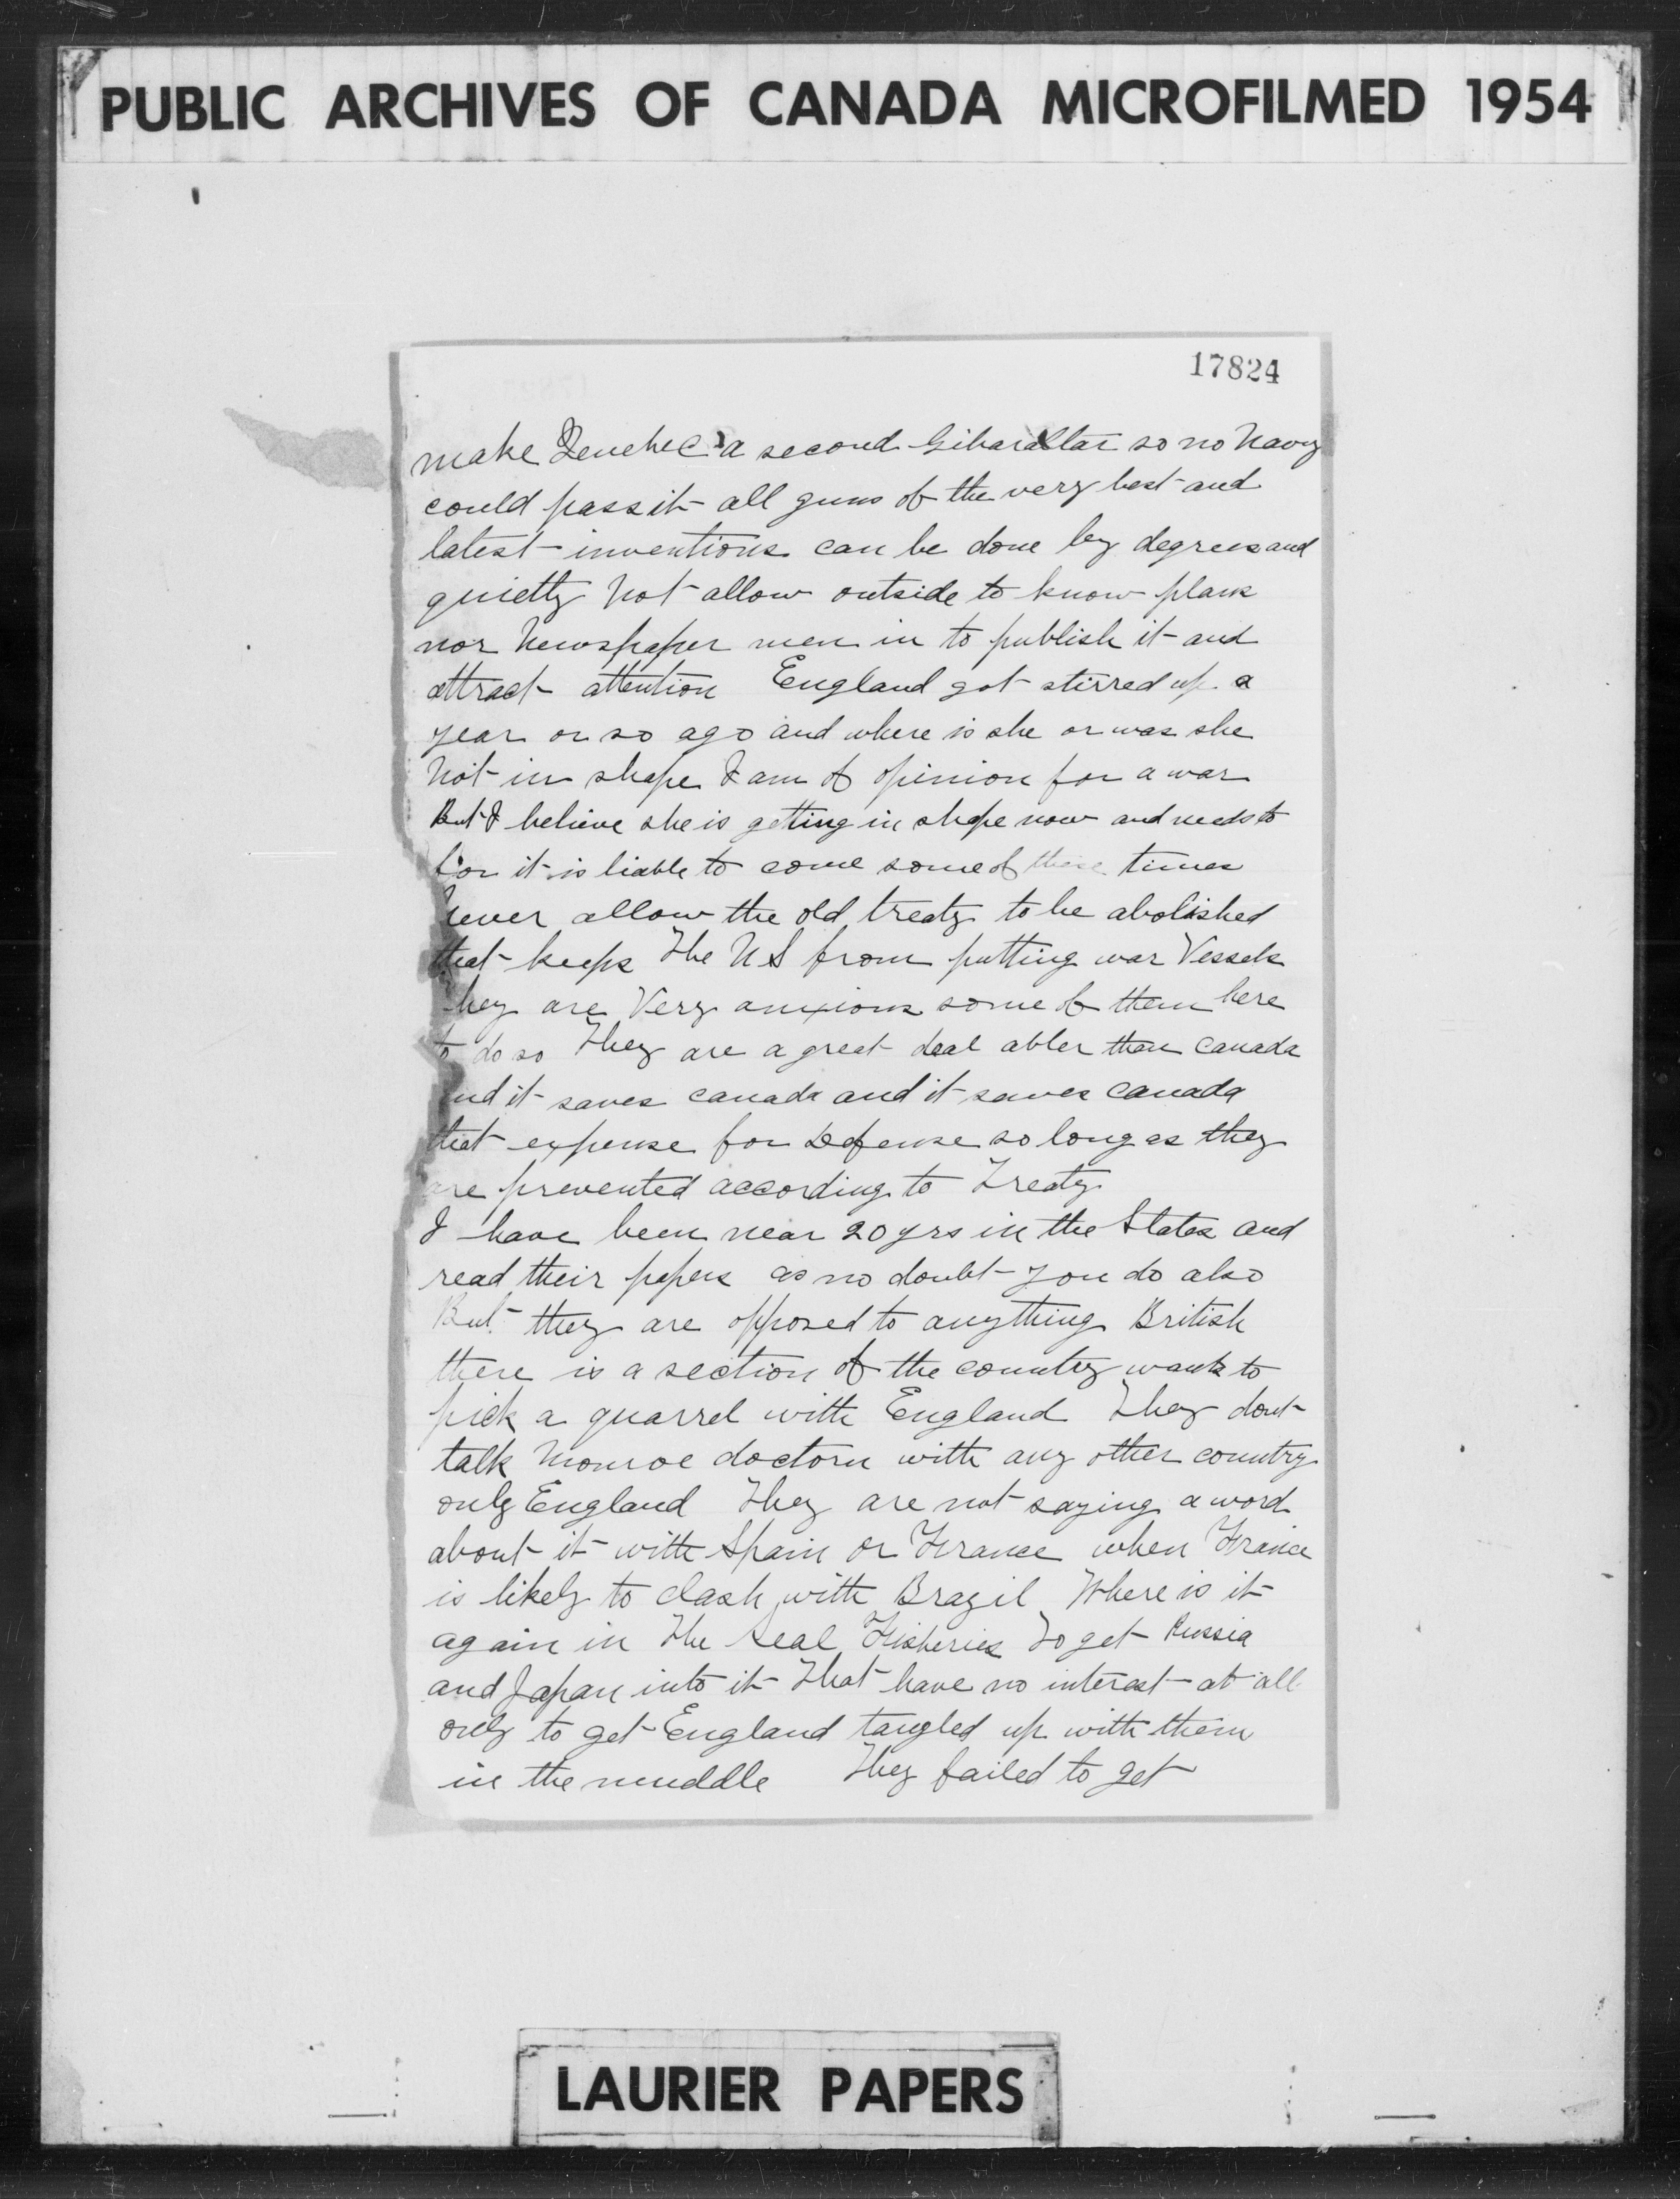 PUBLIC ARCHIVES OF CANADA MICROFILMED 1954
17824
make Quebec a second Gibaraltar so no Navy
could pass it all guns of the very best and
latest inventions can be done by degrees and
quietly Not allow outside to know plans
nor Newspaper men in to publish it and
attract attention England got stirred up a
year or so ago and where is she or was she
Not in shape I am of opinion for a war
But I believe she is getting in shape now and needs to
for it is liable to come some of these times
never allow the old treaty to be abolished
that keeps The US from putting war Vessels
They are Very anxious some of them here
to do so They are a great deal abler than Canada
and it saves Canada and it saves Canada
that expense for Defense so long as they
are prevented according to Treaty
I have been near 20 yrs in the States and
read their papers as no doubt you do also
But they are opposed to anything British
there is a section of the country wants to
pick a quarrel with England They dont
talk Monroe doctorn with any other country
only England They are not saying a word
about it with Spain or France when France
is likely to clash with Brazil Where is it
again in The Seal Fisheries To get Russia
and Japan into it That have no interest at all
only to get England tangled up with them
in the muddle They failed to get
LAURIER PAPERS